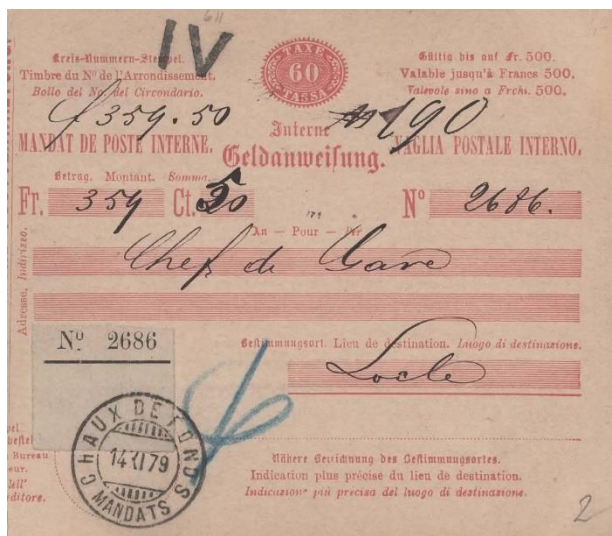 IV
Kreis-Nummern-Stempel.
Timbre du Nº de l'Arrondissement.
Bollo del No. del Circondario.
TAXE
60
TASSA
Gültig bis auf Fr. 500.
Valable jusqu'à Francs 500.
Valevole sino a Frchi. 500.
f 359.50
190
MANDAT DE POSTE INTERNE.
Interne
Geldanweisung.
VAGLIA POSTALE INTERNO.
Betrag. Montant. Somma.
Fr. 359 Ct. 50
Nº 2686.
An — Pour — Per
Chef de Gare
Adresse. Indirizzo.
Nº 2686
Bestimmungsort. Lieu de destination. Luogo di destinazione.
Locle
CHAUX DE FONDS
14 XI 79
MANDATS
Nähere Bezeichnung des Bestimmungsortes.
Indication plus précise du lieu de destination.
Indicazione più precisa del luogo di destinazione.
2